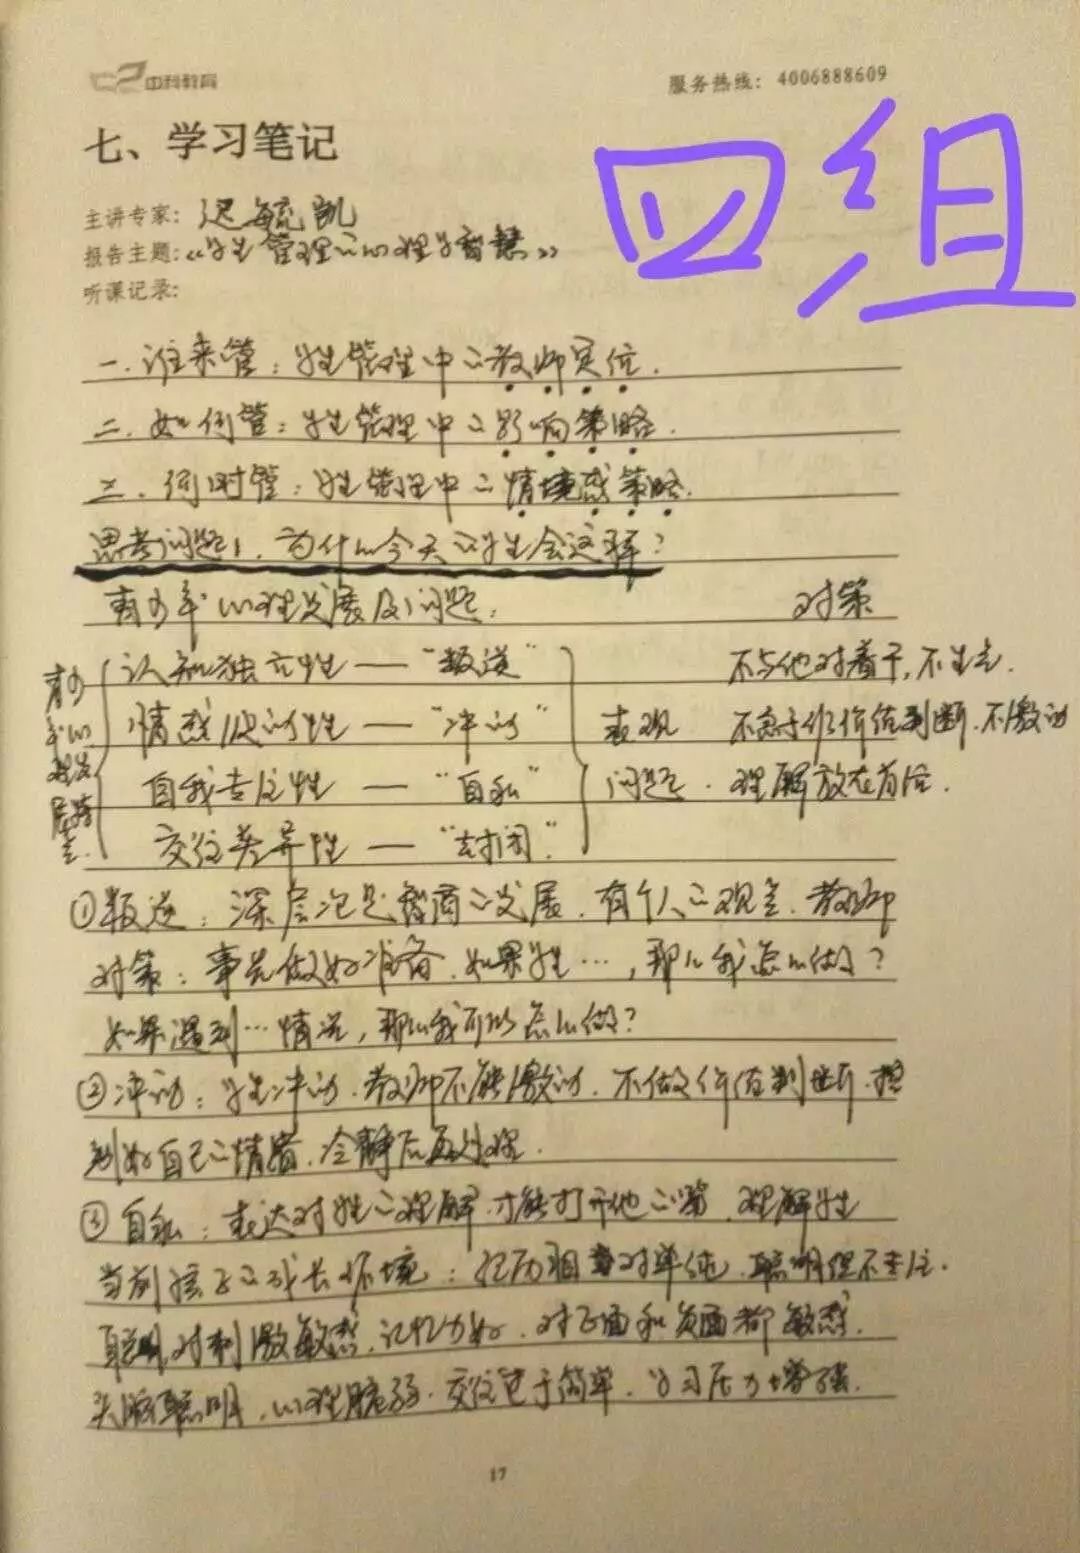 中科教育
服务热线: 4006888609
四组
七、学习笔记
主讲专家: 迟毓凯
报告主题:《学生管理的心理学智慧》
听课记录:
一.谁来管:学生管理中的教师定位.
二.如何管:学生管理中的影响策略.
三.何时管:学生管理中的情境感策略.
思考问题1.为什么今天的学生会这样?
青少年心理发展及问题: 对策
青少年心理发展特点.
认知独立性 — “叛逆” 不与他对着干,不生气.
情感波动性 — “冲动” 表观 不急于作价值判断.不激动
自我专注性 — “自私” 问题. 理解放在首位.
交往差异性 — “封闭”
①叛逆:深层次是智商的发展.有个人的观点.教师
对策:事先做好准备.如果学生…,那么我怎么做?
如果遇到…情况,那么我可以怎么做?
②冲动:学生冲动.教师不能激动.不做价值判断.控
制好自己的情绪.冷静后再处理.
③自私:表达对学生的理解.才能打开他的.理解学生
当前孩子的成长环境:经历相对单纯.聪明但不专注.
聪明.对刺激敏感.记忆力好.对正面和负面都敏感.
头脑聪明.心理脆弱.交往过于简单.学习压力增强.
17